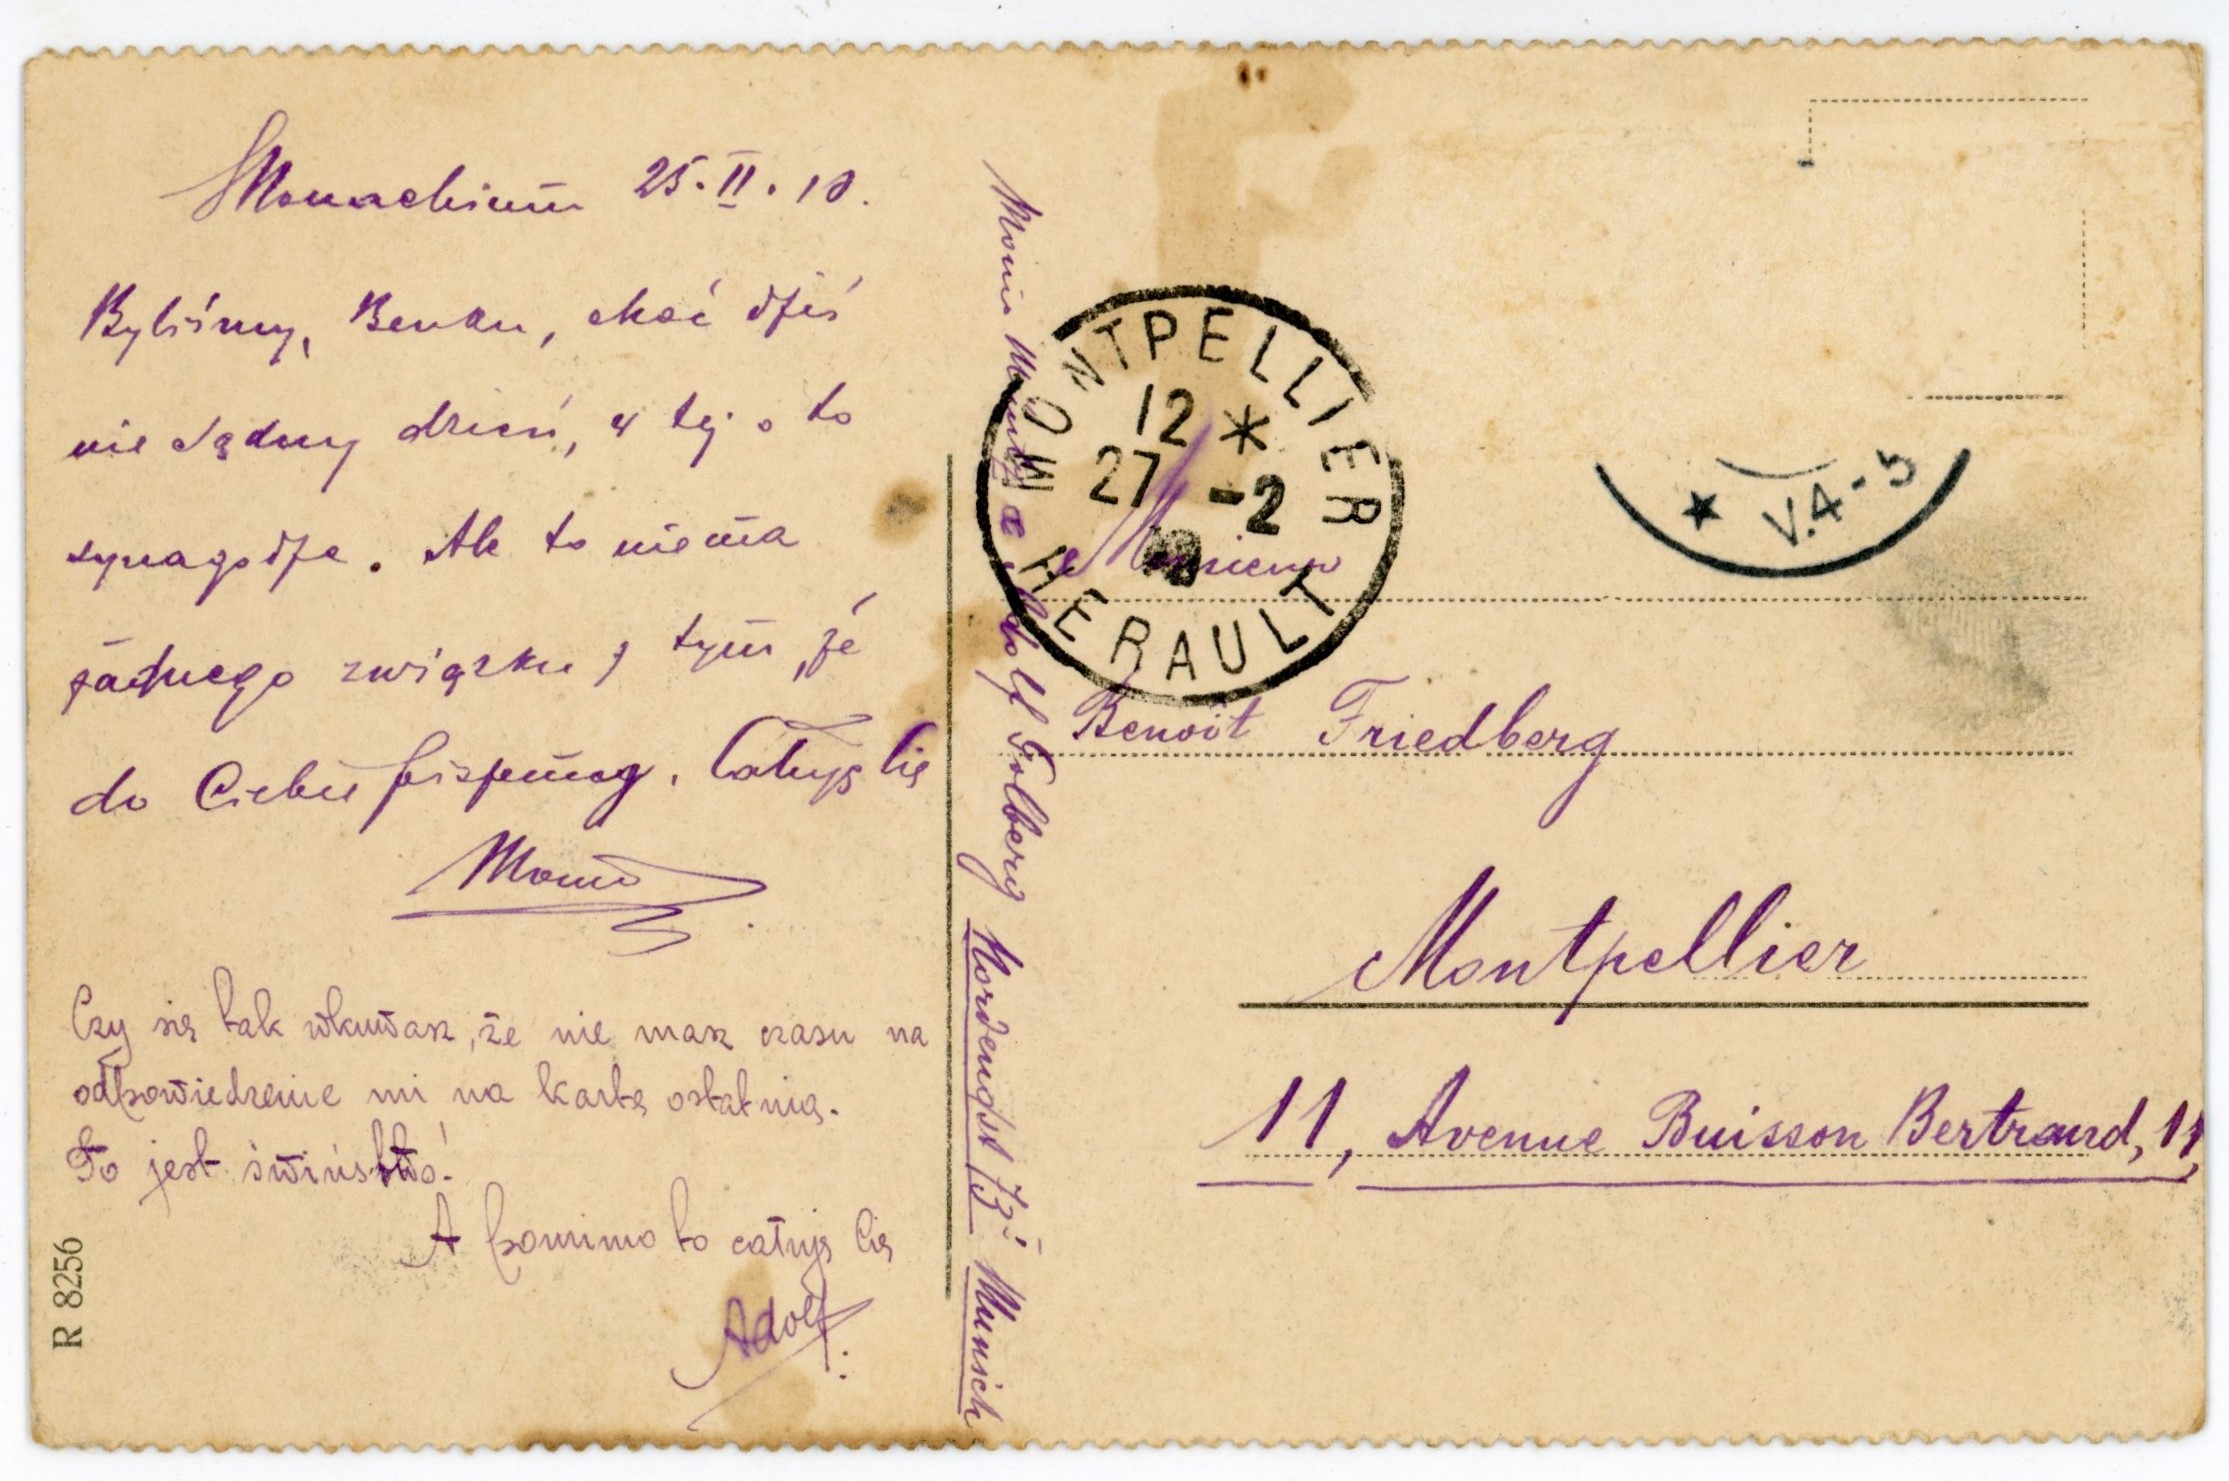 Monachium 25.II.10.
Byliśmy, Benku, choć dziś
nie sądny dzień, w tej o to
synagodze. Ale to niema
żadnego związku z tym, że
do Ciebie piszemy. Całuję Cię
Monio
Czy się tak wkuwasz, że nie masz czasu na
odpowiedzenie mi na kartę ostatnią.
To jest świństwo!
A pomimo to całuję Cię
Adolf
R 8256
Monio
Adolf Golberg Nordendst 73 Munich
MONTPELLIER
12 *
27 -2
HERAULT
* V.4-5
Monsieur
Benoît Friedberg
Montpellier
11, Avenue Buisson Bertrand, 11,